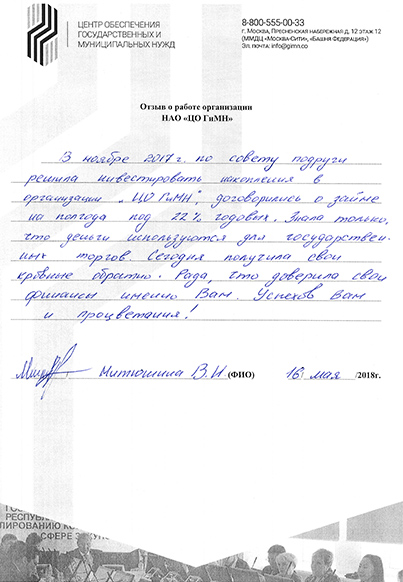 ЦЕНТР ОБЕСПЕЧЕНИЯ
ГОСУДАРСТВЕННЫХ И
МУНИЦИПАЛЬНЫХ НУЖД
8-800-555-00-33
г. Москва, Пресненская набережная д. 12 этаж 12
(ММДЦ «Москва-Сити», «Башня Федерация»)
Эл. почта: info@gimn.co
Отзыв о работе организации
НАО «ЦО ГиМН»
В ноябре 2017 г. по совету подруги
решила инвестировать накопления в
организации „ЦО ГиМН", договорились о займе
на полгода под 22% годовых. Знала только,
что деньги используются для государствен-
ных торгов. Сегодня получила свои
кровные обратно. Рада, что доверила свои
финансы именно Вам. Успехов Вам
и процветания!
Митюшина В.И (ФИО) 16 мая /2018г.
РЕСПУБЛИК
ЛИРОВАНИЮ КО
СФЕРЕ ЗАКУП